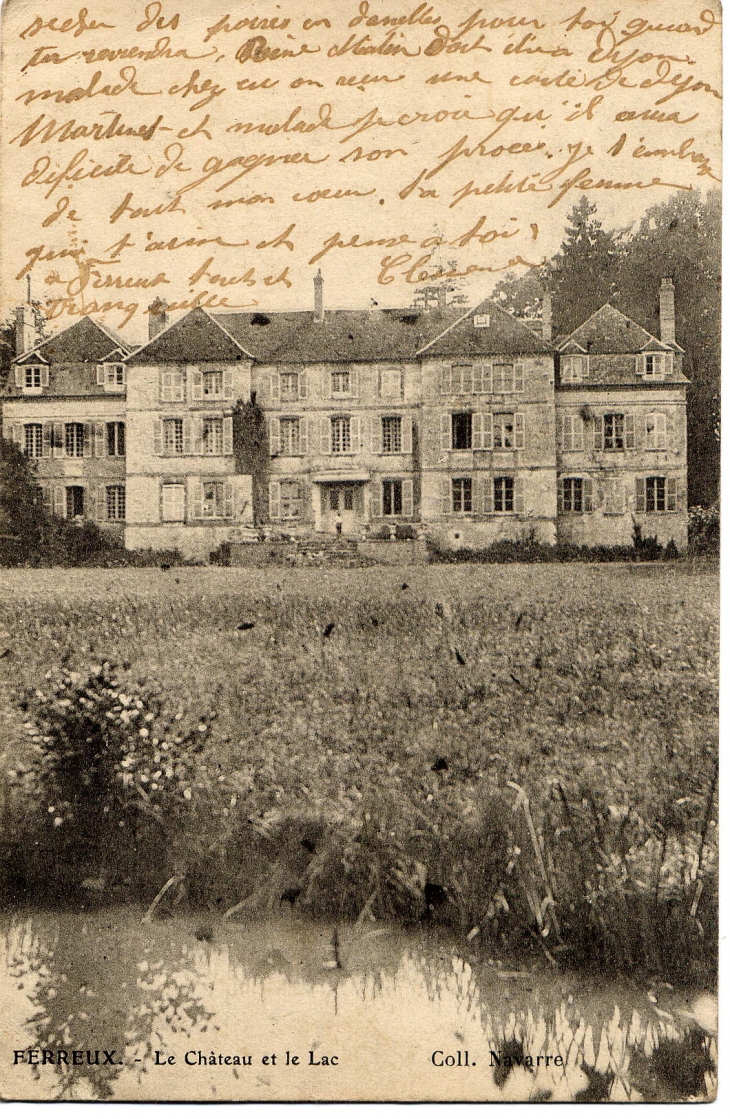 secher des poires en danelles pour toi quand
tu reviendra. Reine Matin doit être a Dijon
malade chez eu on recu une carte de Dijon
Martinet et malade je croie qu'il aura
dificile de gagner son procès. je t'embrasse
de tout mon cœur. ta petite femme
qui t'aime et pense a toi
a Ferreux tout et Clemence
tranquille
FERREUX. - Le Château et le Lac Coll. Navarre